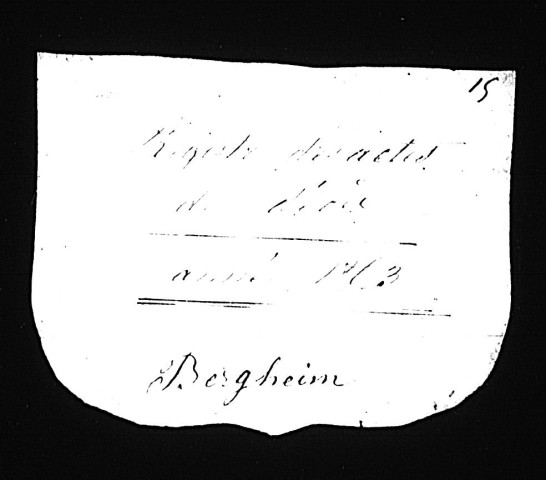 15
Registre des actes
de décès
année 1863
Bergheim